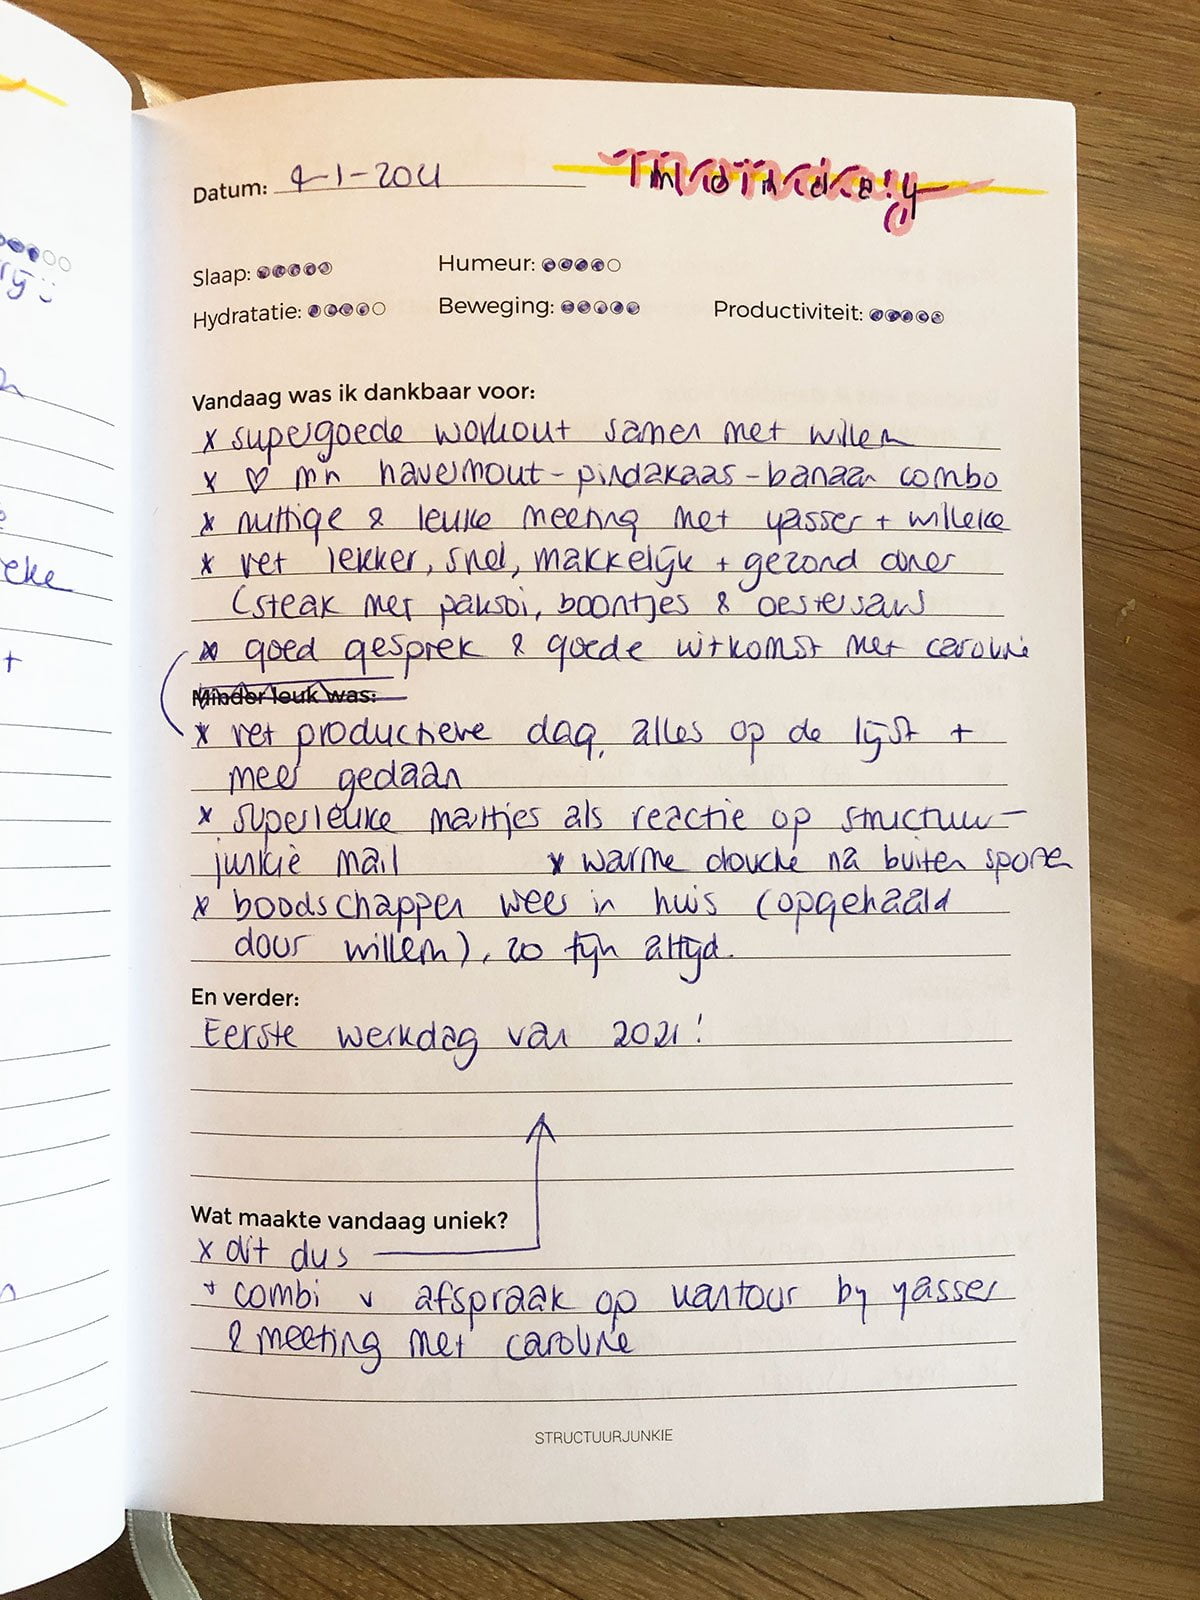 Datum: 4-1-2021
monday
Slaap:
Humeur:
Hydratatie:
Beweging:
Productiviteit:
Vandaag was ik dankbaar voor:
x supergoede workout samen met willem
x ♡ mn havermout-pindakaas-banaan combo
x nuttige & leuke meeting met yasser + willeke
x vet lekker, snel, makkelijk + gezond diner
(steak met paksoi, boontjes & oestersaus
x goed gesprek & goede uitkomst met caroline
Minder leuk was:
x vet productieve dag, alles op de lijst +
meer gedaan
x superleuke mailtjes als reactie op structuur-
junkie mail x warme douche na buiten sporten
x boodschappen weer in huis (opgehaald
door willem), zo fijn altijd.
En verder:
Eerste werkdag van 2021!
Wat maakte vandaag uniek?
x dit dus
+ combi v afspraak op kantoor bij yasser
& meeting met caroline
STRUCTUURJUNKIE
eke